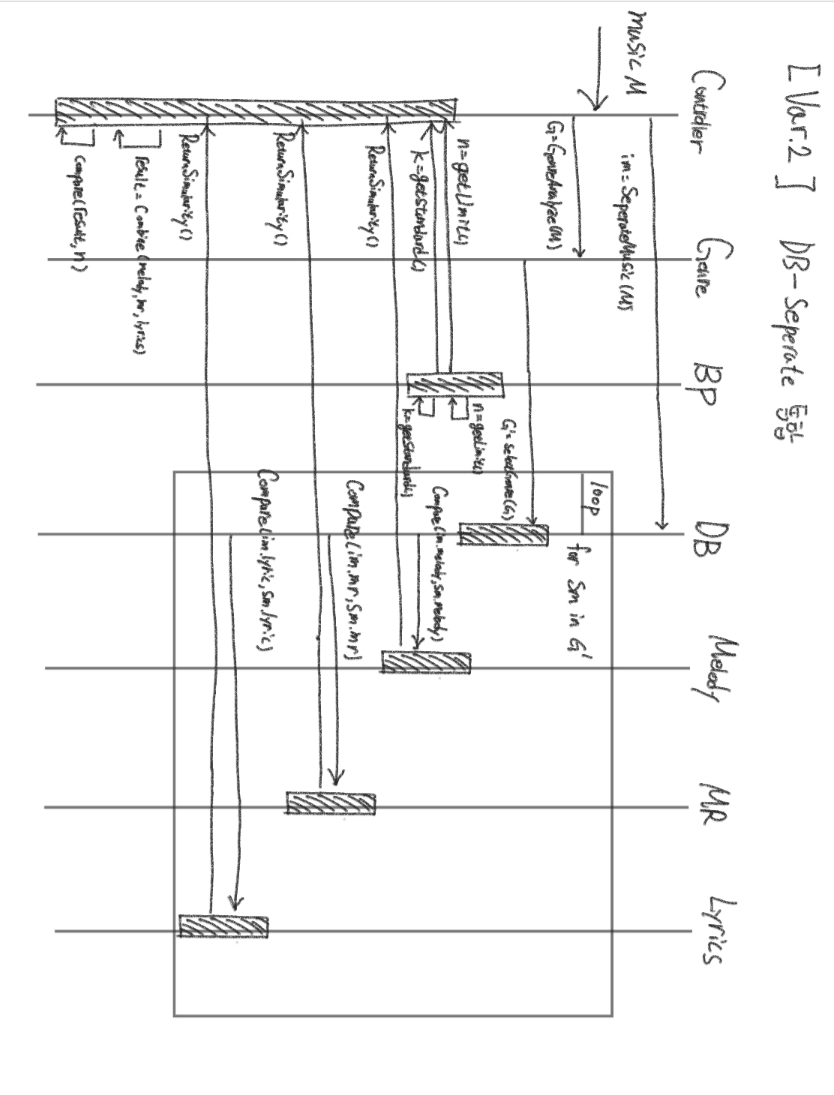 [Var.2] DB-Seperate 통합
Controller Genre BP DB Melody MR Lyrics
music M
im=SeperateMusic(M)
loop
for Sm in G'
G=GenreAnalyze(M)
G'=selectGenre(G)
n=getLimit()
n=getLimit()
k=getStandard()
k=getStandard()
Compare(im.melody,sm.melody)
ReturnSimularity()
Compare(im.mr,sm.mr)
ReturnSimularity()
Compare(im.lyric,sm.lyric)
ReturnSimularity()
result=Combine(melody,mr,lyrics)
Compare(result,n)